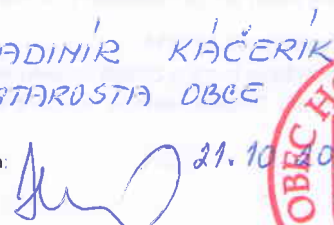 ADIMÍR KÁČERÍK
STAROSTA OBCE
21. 10. 20
OBEC HO